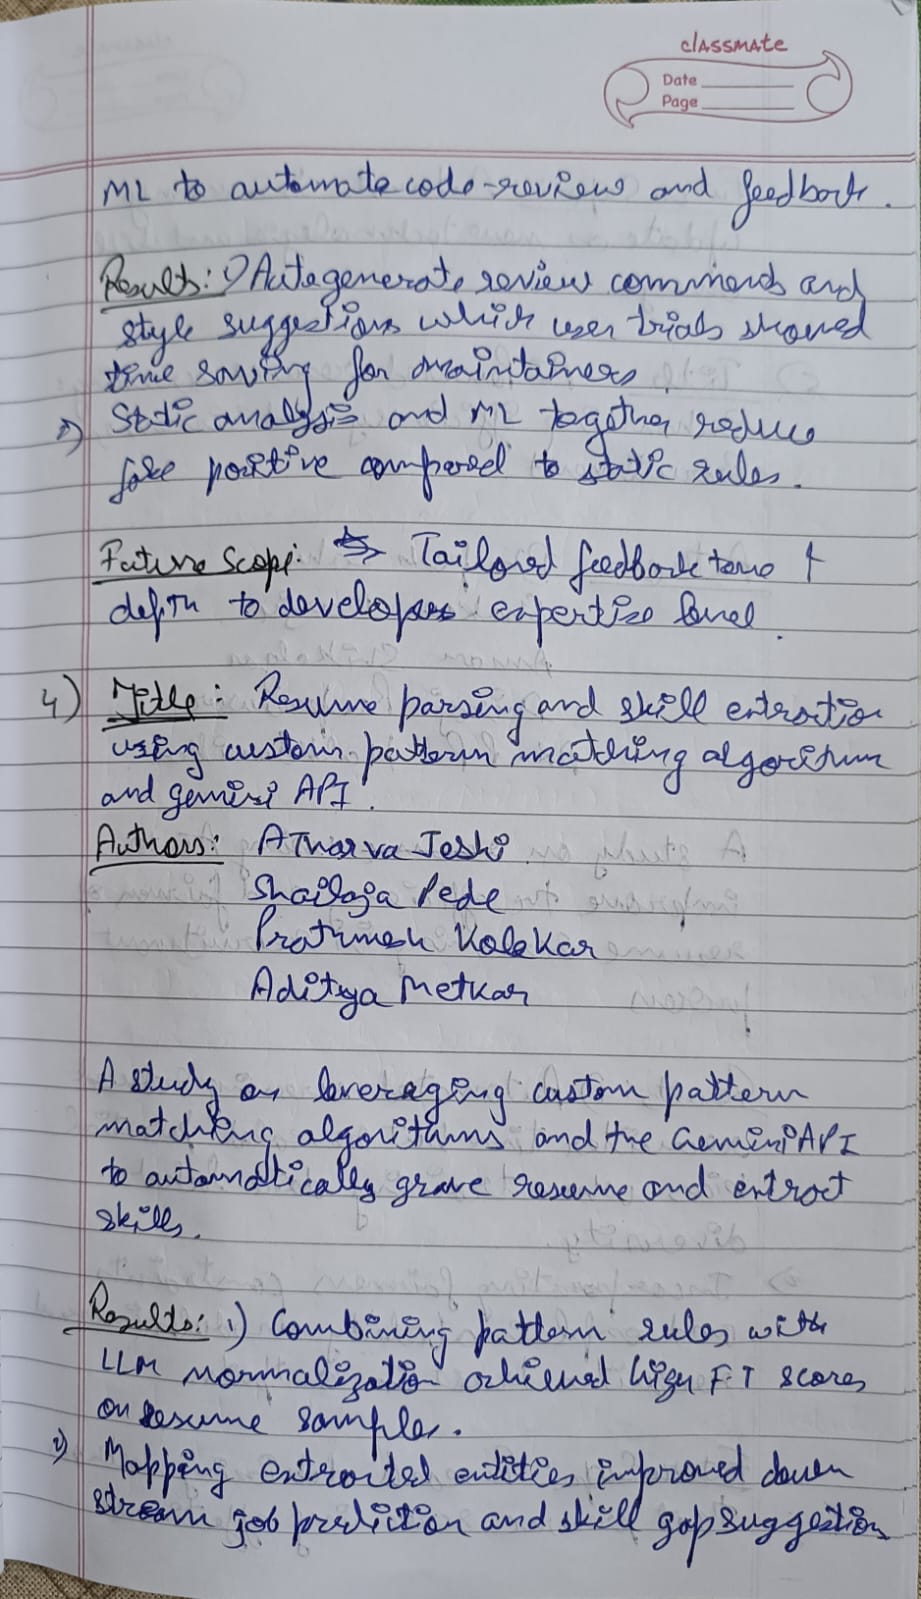 classmate
Date
Page
ML to automate code-review and feedback.
Results: 1) Autogenerate review commends and
style suggestions which user trials showed
time saving for maintainers
2) Static analysis and ML together reduce
false positive compared to static rules.
Future Scope: Tailored feedback tone &
depth to developers expertise level.
4) Title: Resume parsing and skill extraction
using custom pattern matching algorithm
and gemini API.
Authors: Atharva Joshi
Shailaja Pede
Prathmesh Kolekar
Aditya Metkar
A study on leveraging custom pattern
matching algorithms and the Gemini API
to automatically resume and extract
skills.
Results: 1) Combining pattern rules with
LLM normalization achieved high F-1 scores
on resume samples.
2) Mapping extracted entities improved down
stream job prediction and skill gap suggestion